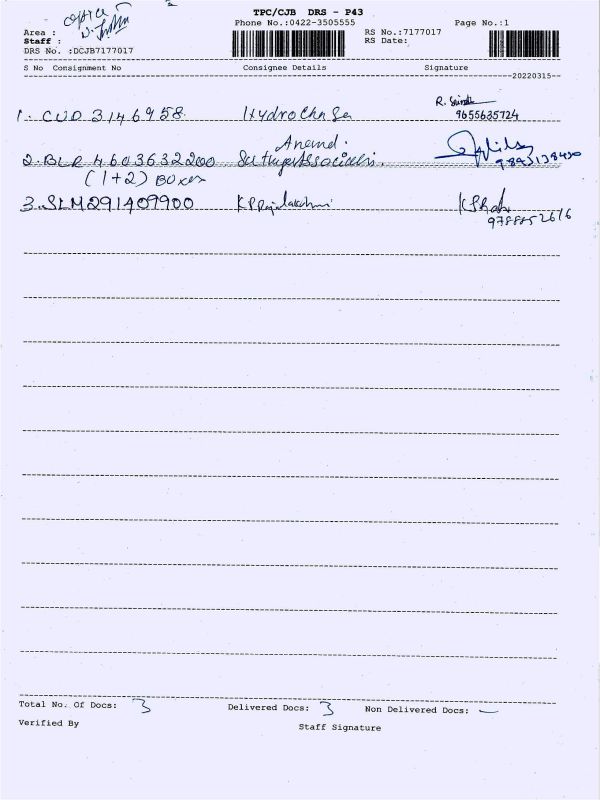 TPC/CJB DRS - P43
Phone No.:0422-3505555
Page No.:1
Area : office
Staff :
DRS No. :DCJB7177017
RS No.:7177017
RS Date:
S No Consignment No Consignee Details Signature
20220315
1. CUD 3146958
R.
9655635724
Anand.
2. BLR 4603632200
(1+2) Boxes
3. SLM291409900 K P Rajalakshmi
9788852616
Total No. Of Docs: 3 Delivered Docs: 3 Non Delivered Docs: -
Verified By Staff Signature